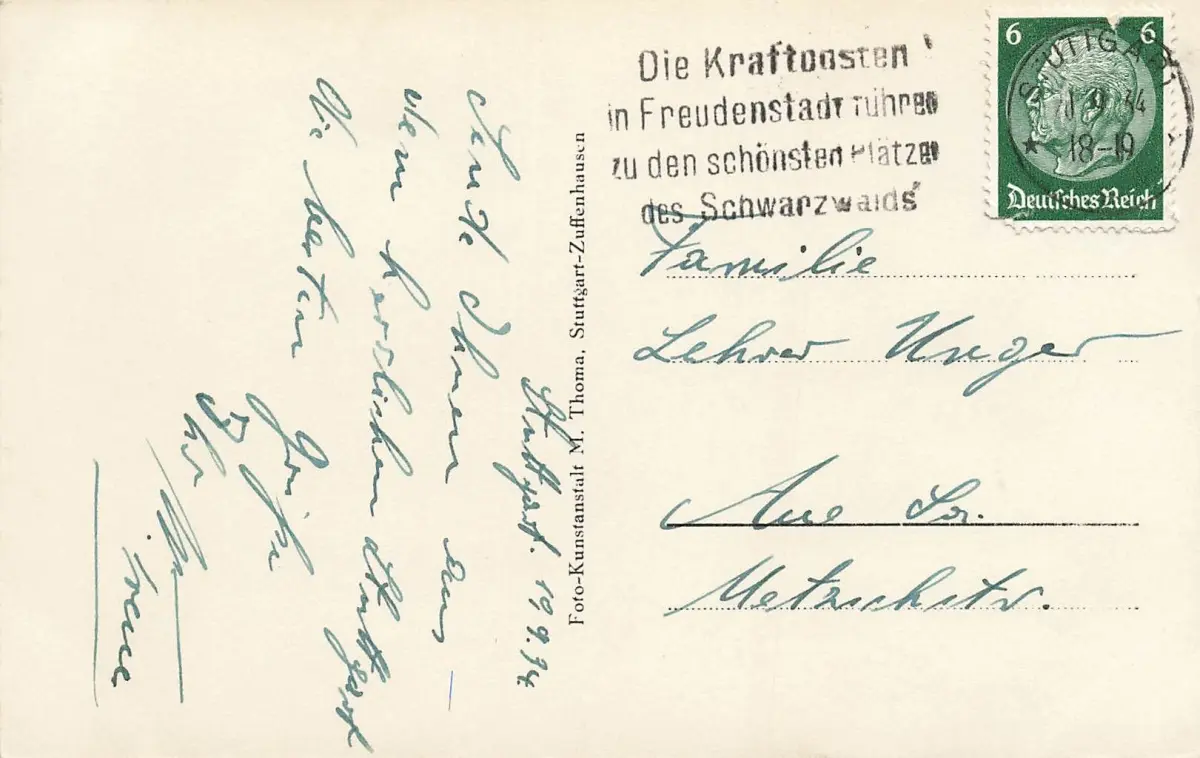 Die Kraftposten
in Freudenstadt führen
zu den schönsten Plätzen
des Schwarzwalds
6 6
STUTTGART
9.34
18-19
Deutsches Reich
Familie
Lehrer Unger
Aue Sa.
Metzschstr.
Foto-Kunstanstalt M. Thoma, Stuttgart-Zuffenhausen
Stuttgart. 19 9. 34.
Sende Ihnen aus
dem herrlichen Stuttgart
die besten
Grüße
Ihr
Irene